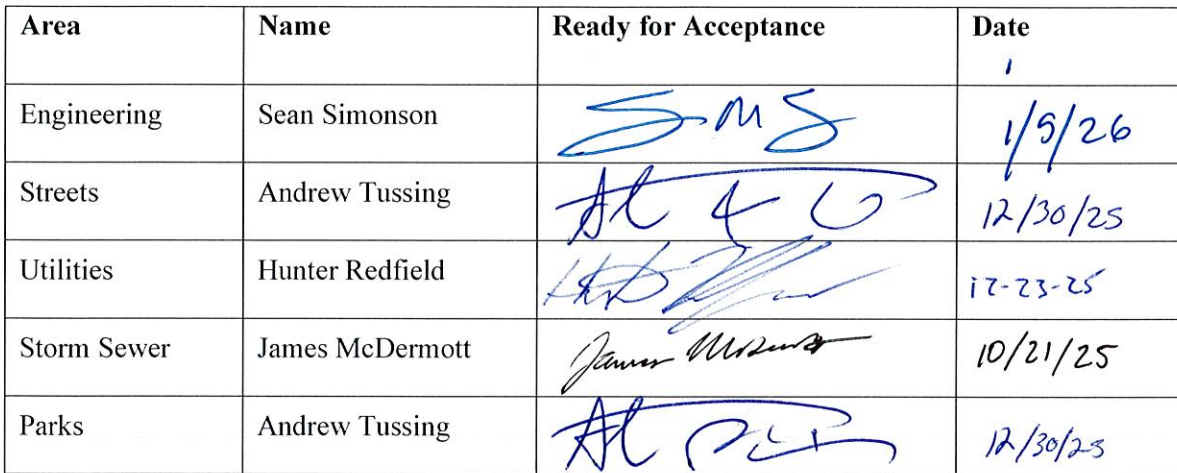 Area Name Ready for Acceptance Date
Engineering Sean Simonson 1/9/26
Streets Andrew Tussing 12/30/25
Utilities Hunter Redfield 12-23-25
Storm Sewer James McDermott 10/21/25
Parks Andrew Tussing 12/30/25